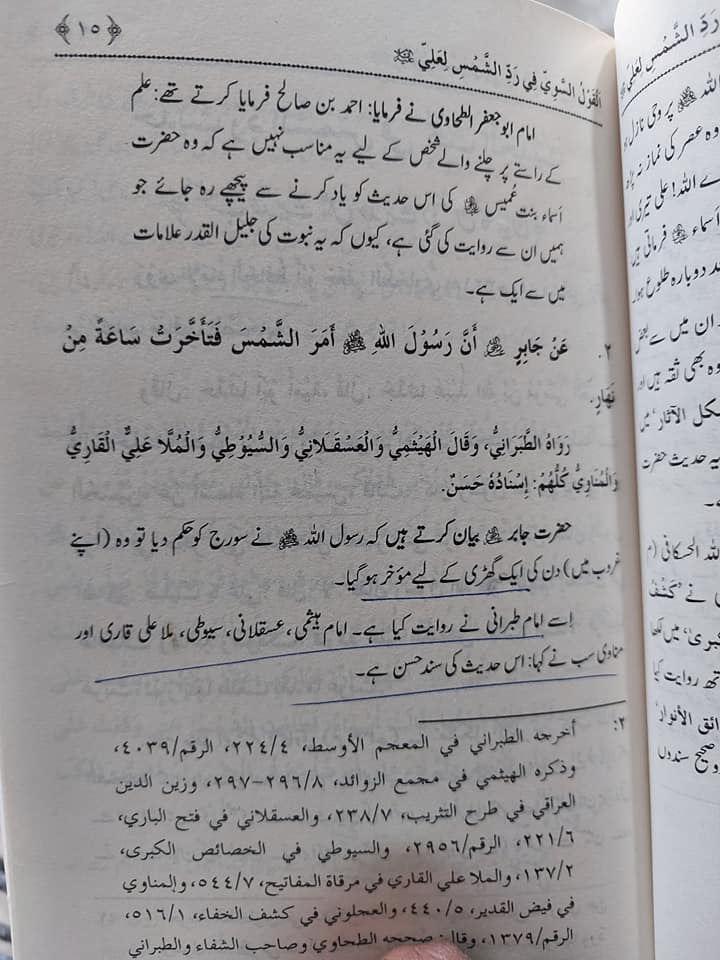 ﴿١٥﴾
اَلْقَوْلُ السَّوِيّ فِي رَدِّ الشَّمْسِ لِعَلِيٍّ ؓ
امام ابو جعفر الطحاوی نے فرمایا: احمد بن صالح فرمایا کرتے تھے: علم
کے راستے پر چلنے والے شخص کے لیے یہ مناسب نہیں ہے کہ وہ حضرت
اَسماء بنت عُمیس ؓ کی اس حدیث کو یاد کرنے سے پیچھے رہ جائے جو
ہمیں ان سے روایت کی گئی ہے، کیوں کہ یہ نبوت کی جلیل القدر علامات
میں سے ایک ہے۔
٢. عَنْ جَابِرٍ ؓ أَنَّ رَسُوْلَ اللهِ ﷺ أَمَرَ الشَّمْسَ فَتَأَخَّرَتْ سَاعَةً مِنْ
نَهَارٍ.
رَوَاهُ الطَّبَرَانِيُّ، وَقَالَ الْهَيْثَمِيُّ وَالْعَسْقَلَانِيُّ وَالسُّيُوْطِيُّ وَالْمُلَّا عَلِيٌّ الْقَارِيُّ
وَالْمُنَاوِيُّ كُلُّهُمْ: إِسْنَادُهُ حَسَنٌ.
حضرت جابر ؓ بیان کرتے ہیں کہ رسول اللہ ﷺ نے سورج کو حکم دیا تو وہ (اپنے
غروب میں) دن کی ایک گھڑی کے لیے مؤخر ہو گیا۔
اِسے امام طبرانی نے روایت کیا ہے۔ امام ہیثمی، عسقلانی، سیوطی، ملا علی قاری اور
مناوی سب نے کہا: اس حدیث کی سند حسن ہے۔
٢: أخرجه الطبراني في المعجم الأوسط، ٤/٢٢٤، الرقم/٤٠٣٩،
وذكره الهيثمي في مجمع الزوائد، ٨/٢٩٦-٢٩٧، وزين الدين
العراقي في طرح التثريب، ٧/٢٣٨، والعسقلاني في فتح الباري،
٦/٢٢١، الرقم/٢٩٥٦، والسيوطي في الخصائص الكبرى،
٢/١٣٧، والملا علي القاري في مرقاة المفاتيح، ٧/٥٤٤، والمناوي
في فيض القدير، ٥/٤٤٠، والعجلوني في كشف الخفاء، ١/٥١٦،
الرقم/١٣٧٩، وقال: صححه الطحاوي وصاحب الشفاء والطبراني
رَدِّ الشَّمْسِ لِعَلِيٍّ ؓ
اللہ ﷺ پر وحی نازل
وہ عصر کی نماز نہ
اے اللہ! علی تیری اور
اَسماء ؓ فرماتی ہیں
دوبارہ طلوع ہوا۔
ان میں سے بعض
وہ بھی ثقہ ہیں اور
مشکل الآثار‘ میں
یہ حدیث حضرت
اللہ الحسکانی (م
نے ’کَشْفُ
کبری‘ میں لکھا
ساتھ روایت کیا
الأنوار‘
صحیح سندوں